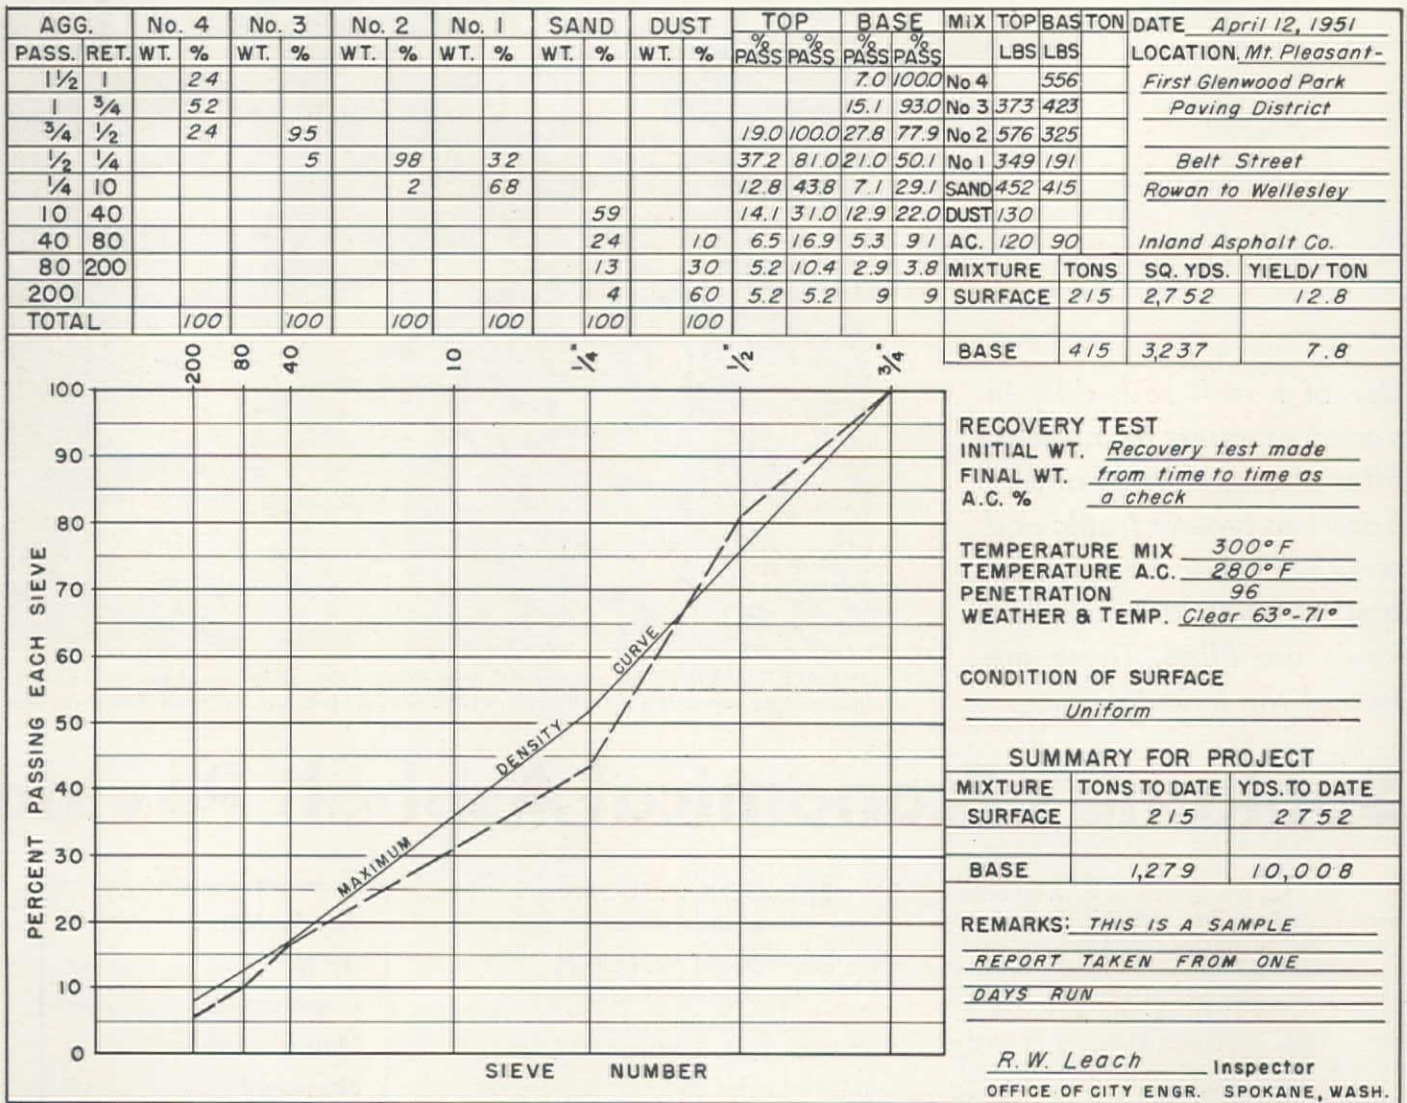 AGG. No. 4 No. 3 No. 2 No. 1 SAND DUST TOP BASE MIX TOP BAS TON
PASS. RET. WT. % WT. % WT. % WT. % WT. % WT. % % PASS % PASS % PASS % PASS LBS LBS
1½ 1 24 7.0 100.0 No 4 556
1 ¾ 52 15.1 93.0 No 3 373 423
¾ ½ 24 95 19.0 100.0 27.8 77.9 No 2 576 325
½ ¼ 5 98 32 37.2 81.0 21.0 50.1 No 1 349 191
¼ 10 2 68 12.8 43.8 7.1 29.1 SAND 452 415
10 40 59 14.1 31.0 12.9 22.0 DUST 130
40 80 24 10 6.5 16.9 5.3 9 1 AC. 120 90
80 200 13 30 5.2 10.4 2.9 3.8
200 4 60 5.2 5.2 9 9
TOTAL 100 100 100 100 100 100
DATE April 12, 1951
LOCATION. Mt. Pleasant-
First Glenwood Park
Paving District
Belt Street
Rowan to Wellesley
Inland Asphalt Co.
MIXTURE TONS SQ. YDS. YIELD/ TON
SURFACE 215 2,752 12.8
BASE 415 3,237 7.8
200 80 40 10 ¼" ½" ¾"
100
90
80
70
60
50
40
30
20
10
0
PERCENT PASSING EACH SIEVE
MAXIMUM DENSITY CURVE
SIEVE NUMBER
RECOVERY TEST
INITIAL WT. Recovery test made
FINAL WT. from time to time as
A.C. % a check
TEMPERATURE MIX 300°F
TEMPERATURE A.C. 280°F
PENETRATION 96
WEATHER & TEMP. Clear 63°-71°
CONDITION OF SURFACE
Uniform
SUMMARY FOR PROJECT
MIXTURE TONS TO DATE YDS. TO DATE
SURFACE 215 2752
BASE 1,279 10,008
REMARKS: THIS IS A SAMPLE
REPORT TAKEN FROM ONE
DAYS RUN
R.W. Leach Inspector
OFFICE OF CITY ENGR. SPOKANE, WASH.